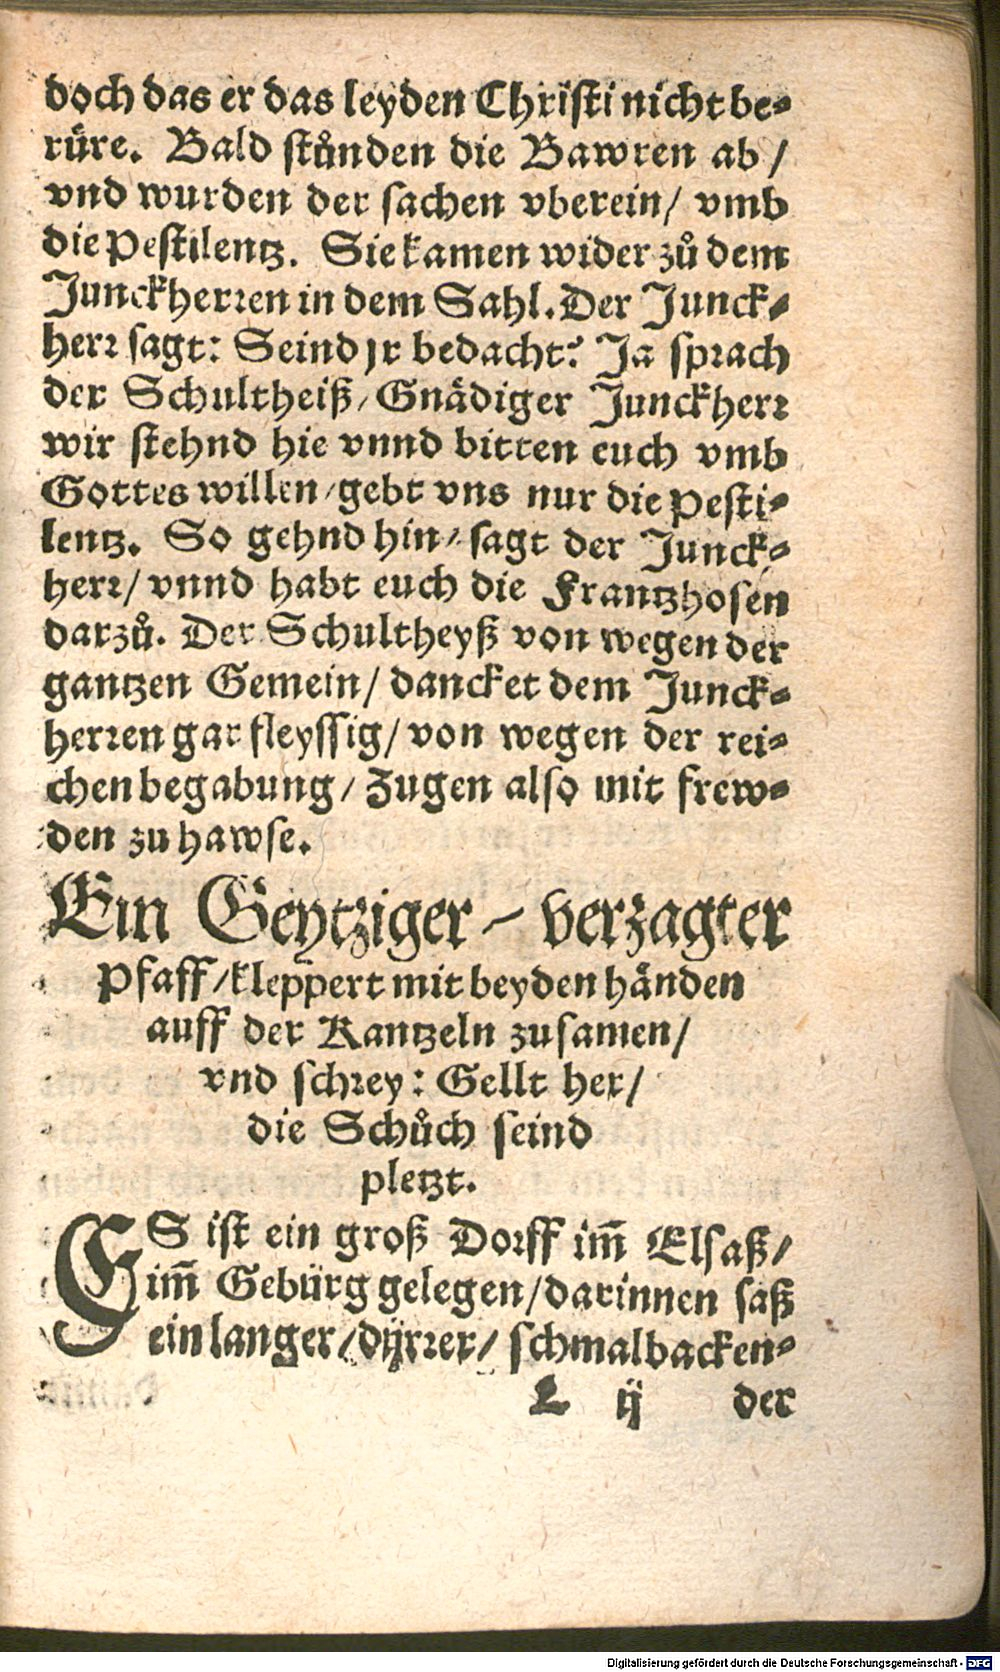 doch das er das leyden Christi nicht be⸗
ruͤre. Bald stůnden die Bawren ab /
vnd wurden der sachen vberein / vmb
die Pestilentz. Sie kamen wider zů dem
Junckherren in dem Sahl. Der Junck⸗
herr sagt: Seind jr bedacht? Ja sprach
der Schultheiß / Gnädiger Junckherr
wir stehnd hie vnnd bitten euch vmb
Gottes willen / gebt vns nur die Pesti⸗
lentz. So gehnd hin / sagt der Junck⸗
herr / vnnd habt euch die Frantzhosen
darzů. Der Schultheyß von wegen der
gantzen Gemein / dancket dem Junck⸗
herren gar fleyssig / von wegen der rei⸗
chen begabung / Zugen also mit frew⸗
den zu hawse.
Ein Geytziger / verzagter
Pfaff / kleppert mit beyden händen
auff der Kantzeln zusamen /
vnd schrey: Gellt her /
die Schůch seind
pletzt.
ES ist ein groß Dorff im̃ Elsaß /
im̃ Gebürg gelegen / darinnen saß
ein langer / dürrer / schmalbacken⸗
L ij der
Digitalisierung gefördert durch die Deutsche Forschungsgemeinschaft - DFG